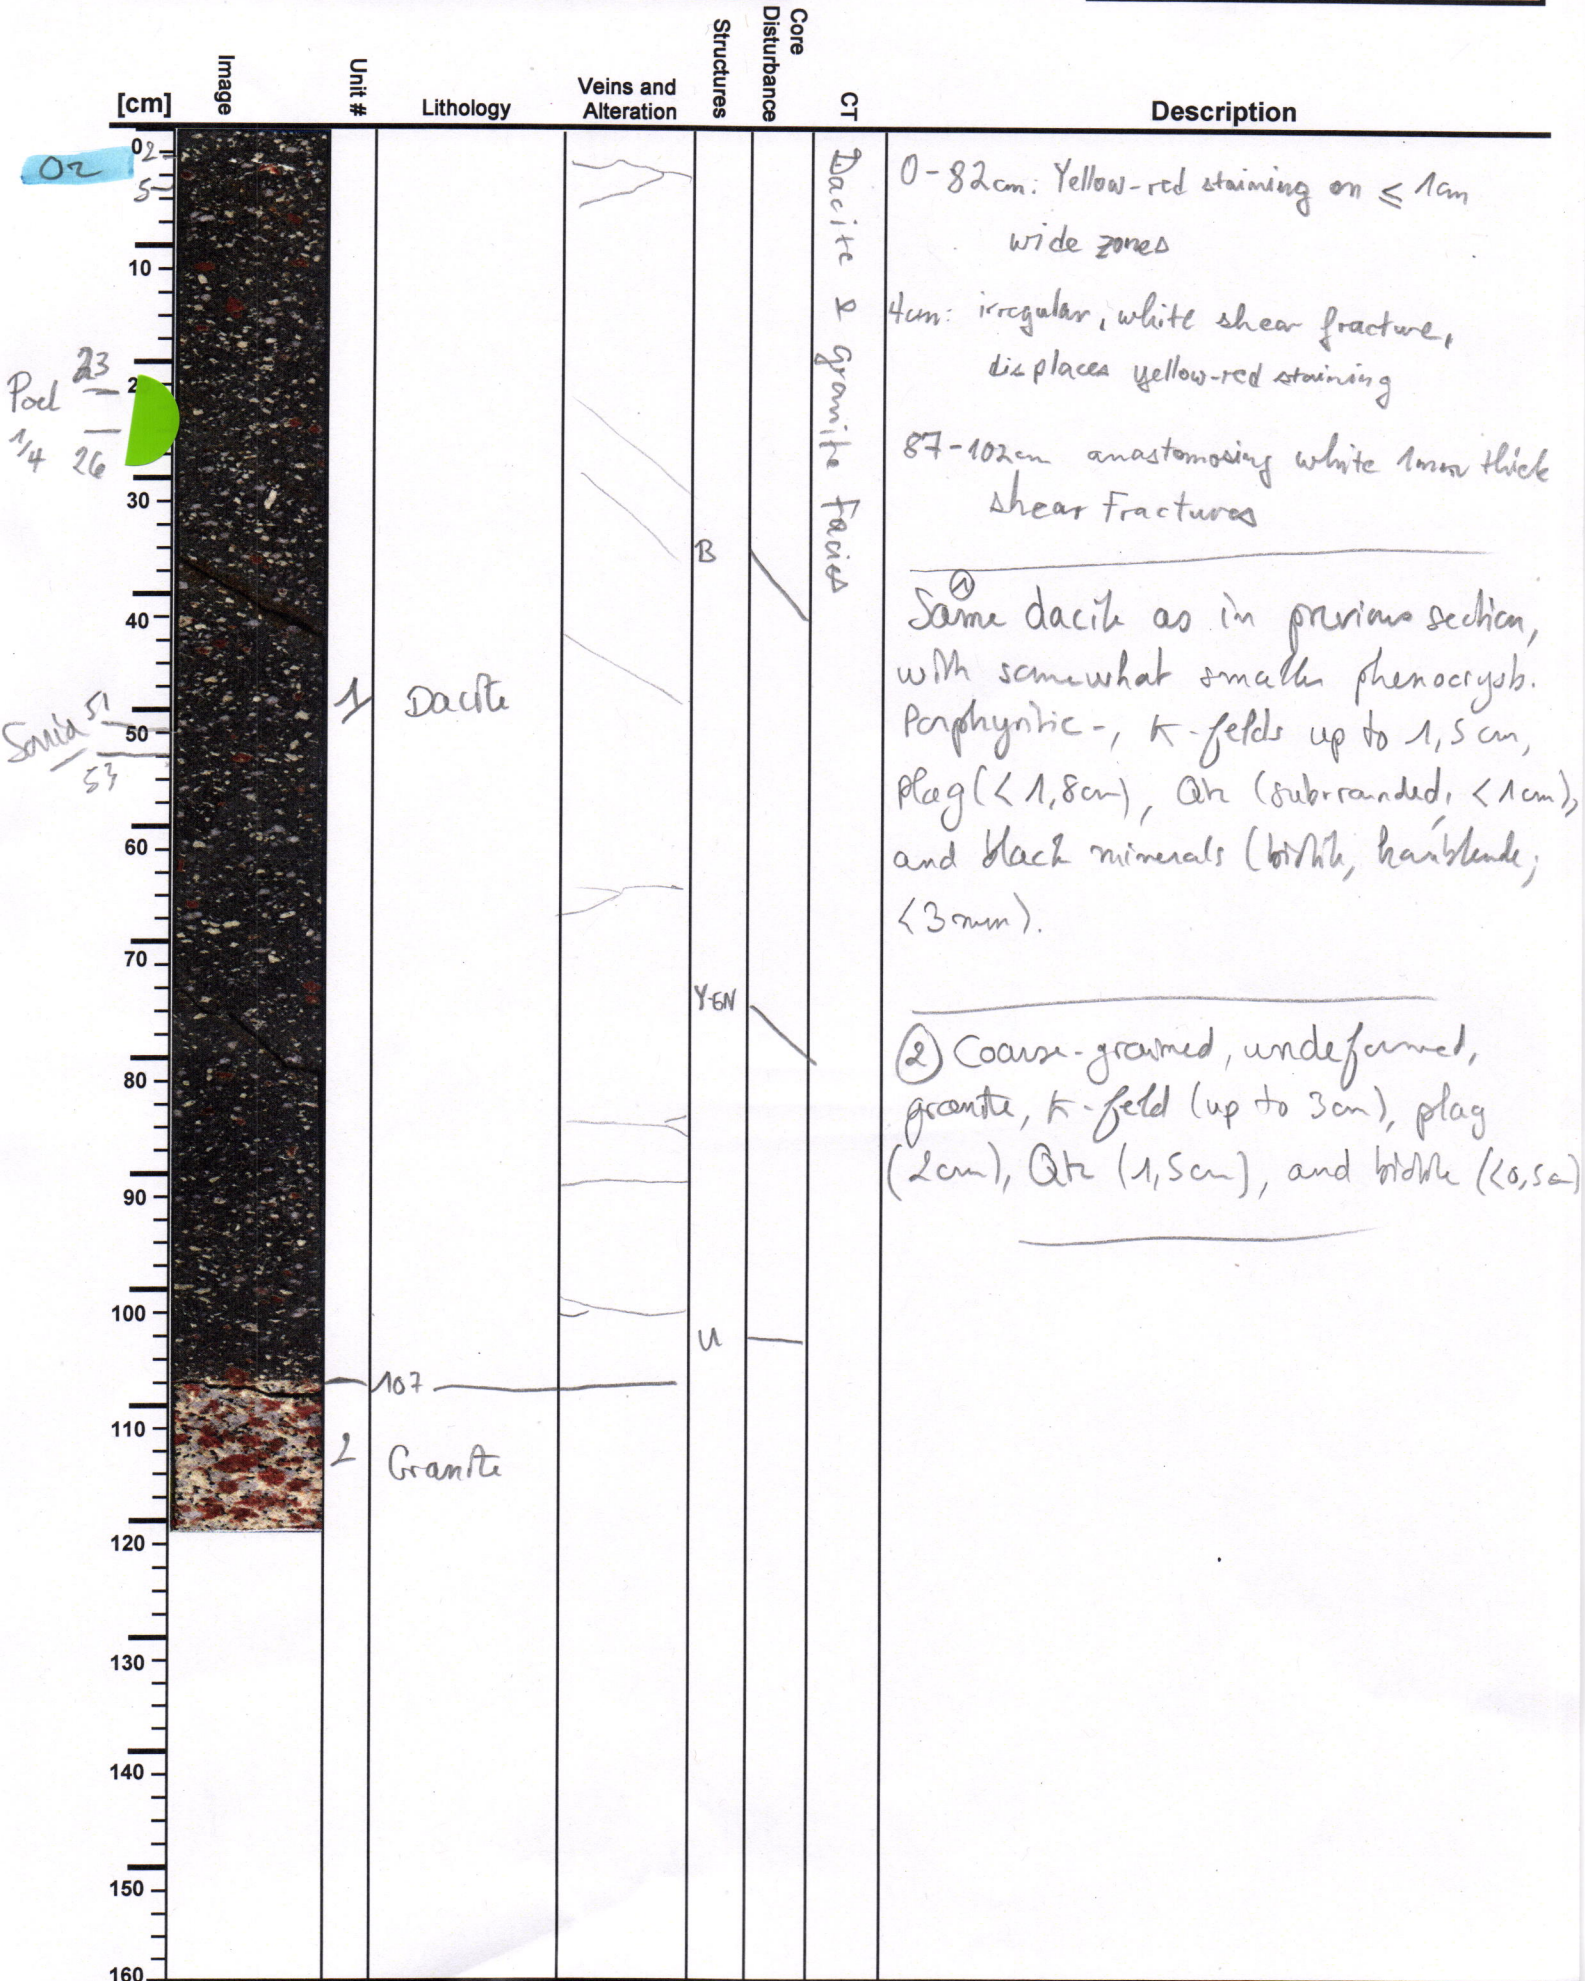 Core
Disturbance
Structures
Image
Unit #
Veins and
Alteration
CT
[cm]
Lithology
Description
0
2
5
O2
10
Poel
1/4
23
2
26
30
40
50
51
53
60
70
80
90
100
110
120
130
140
150
160
1
Dacite
107
2
Granite
B
Y-GN
U
Dacite & granite facies
0-82cm: Yellow-red staining on ≤ 1cm
wide zones
4cm: irregular, white shear fracture,
displaces yellow-red staining
87-102cm anastomosing white 1mm thick
shear Fractures
1
Same dacite as in previous section,
with somewhat smaller phenocrysts.
Porphyritic-, K-felds up to 1,5 cm,
plag (<1,8cm), Qtz (subrounded, <1cm),
and black minerals (biotite, hornblende,
<3mm).
2 Coarse-grained, undeformed,
granite, K-feld (up to 3cm), plag
(2cm), Qtz (1,5cm), and biotite (<0,5cm)